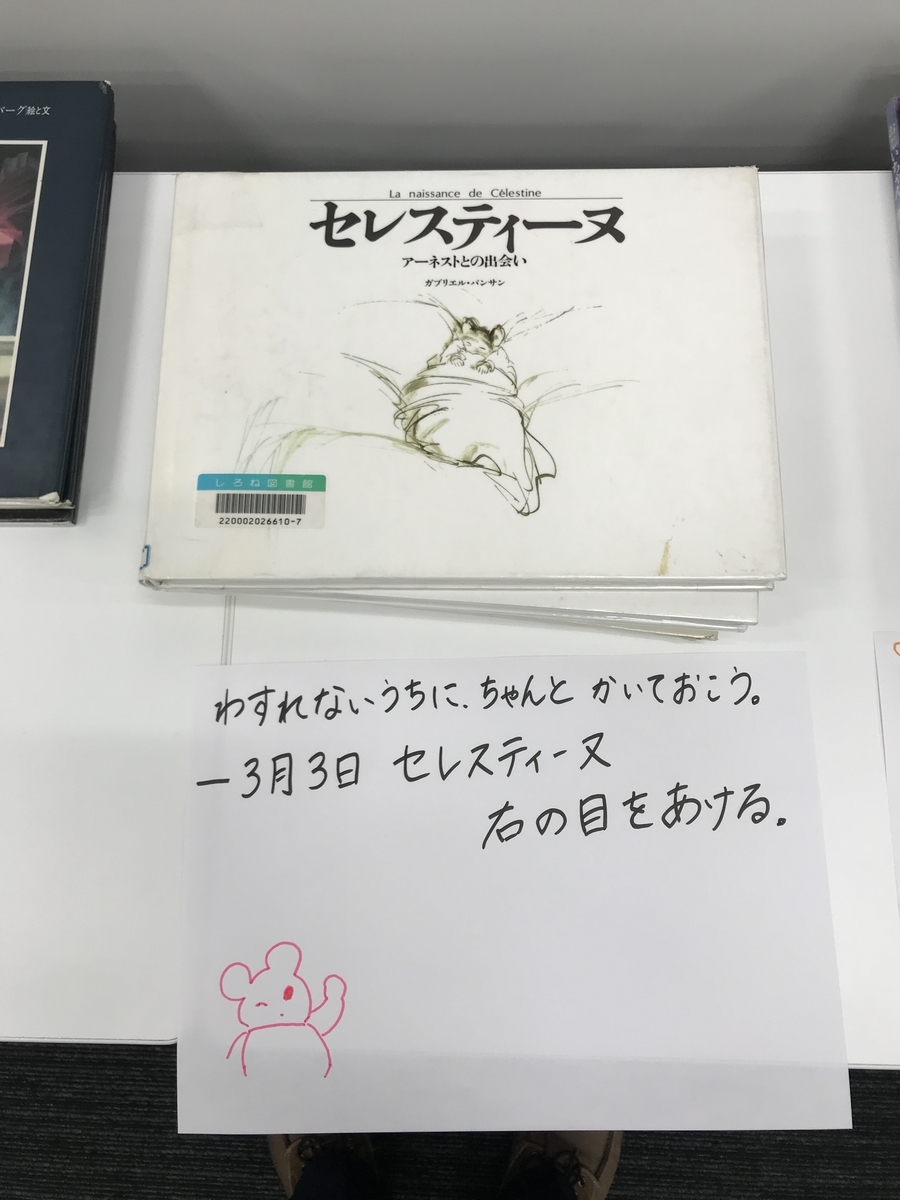 バーグ絵と文
La naissance de Célestine
セレスティーヌ
アーネストとの出会い
ガブリエル・バンサン
しろね図書館
220002026610-7
わすれないうちに、ちゃんと かいておこう。
ー3月3日 セレスティーヌ
右の目をあける。